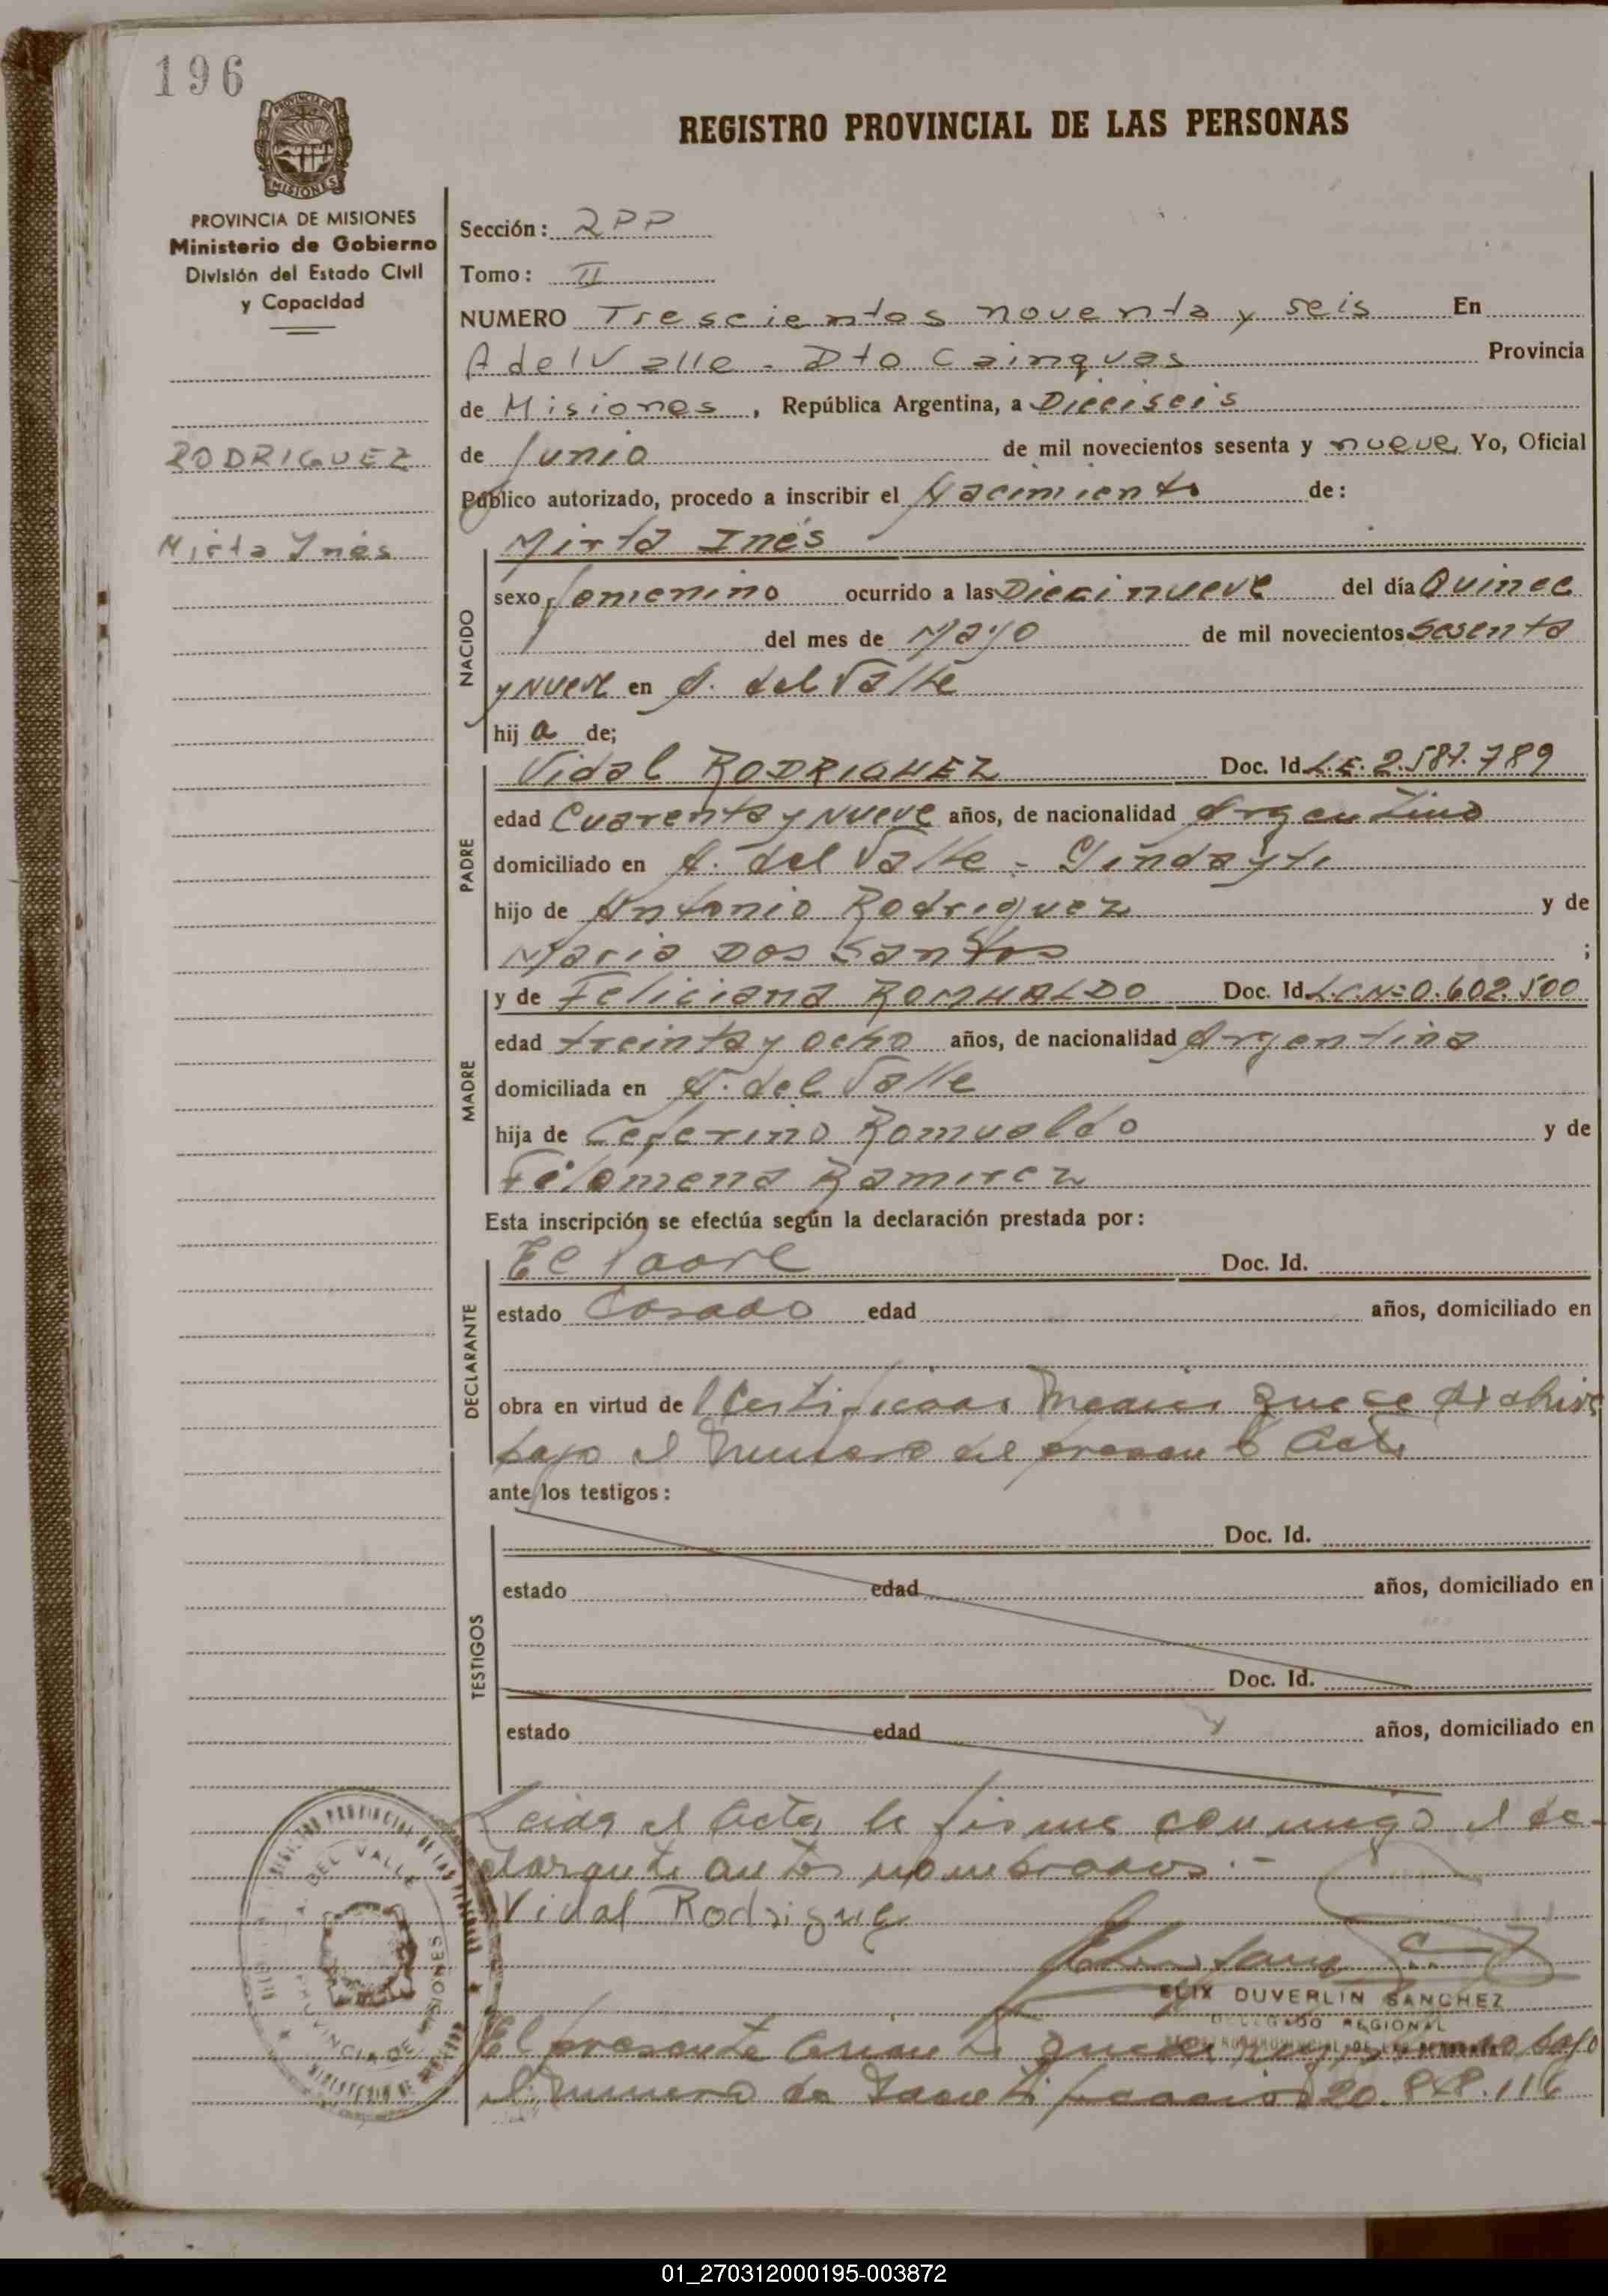 196
REGISTRO PROVINCIAL DE LAS PERSONAS
PROVINCIA DE
MISIONES
PROVINCIA DE MISIONES
Ministerio de Gobierno
División del Estado Civil
y Capacidad
RODRIGUEZ
Mirta Ynés
Sección: 2PP
Tomo: II
NUMERO Trescientos noventa y seis En
A del Valle - Dto Cainguas Provincia
de Misiones, República Argentina, a Dieciseis
de Junio de mil novecientos sesenta y nueve, Yo, Oficial
Público autorizado, procedo a inscribir el Nacimiento de:
NACIDO
Mirta Inés
sexo femenino ocurrido a las Diecinueve del día Quince
del mes de Mayo de mil novecientos Sesenta
y nueve en A. del Valle
hij a de;
PADRE
Vidal RODRIGUEZ Doc. Id. L.E. 2.587.789
edad Cuarenta y nueve años, de nacionalidad Argentino
domiciliado en A. del Valle -
hijo de Antonio Rodriguez y de
Maria Dos Santos ;
MADRE
y de Feliciana ROMUALDO Doc. Id. L.C.Nº 0.602.500
edad treinta y ocho años, de nacionalidad Argentina
domiciliada en A. del Valle
hija de Ceferino Romualdo y de
Filomena Ramirez
Esta inscripción se efectúa según la declaración prestada por:
DECLARANTE
El Padre Doc. Id.
estado Casado edad años, domiciliado en
obra en virtud de Certificado Medico que se archiva
bajo el Numero del presente Acta
ante los testigos:
TESTIGOS
Doc. Id.
estado edad años, domiciliado en
Doc. Id.
estado edad años, domiciliado en
Leida el Acta la firma conmigo el de-
clarante antes nombrados.-
Vidal Rodriguez
ELIX DUVERLIN SANCHEZ
DELEGADO REGIONAL
REGISTRO PROVINCIAL DE LAS PERSONAS
A. DEL VALLE
PROVINCIA DE MISIONES
MINISTERIO DE GOBIERNO
El presente queda bajo
el numero de Identificacion 20.8 8.116
01_270312000195-003872